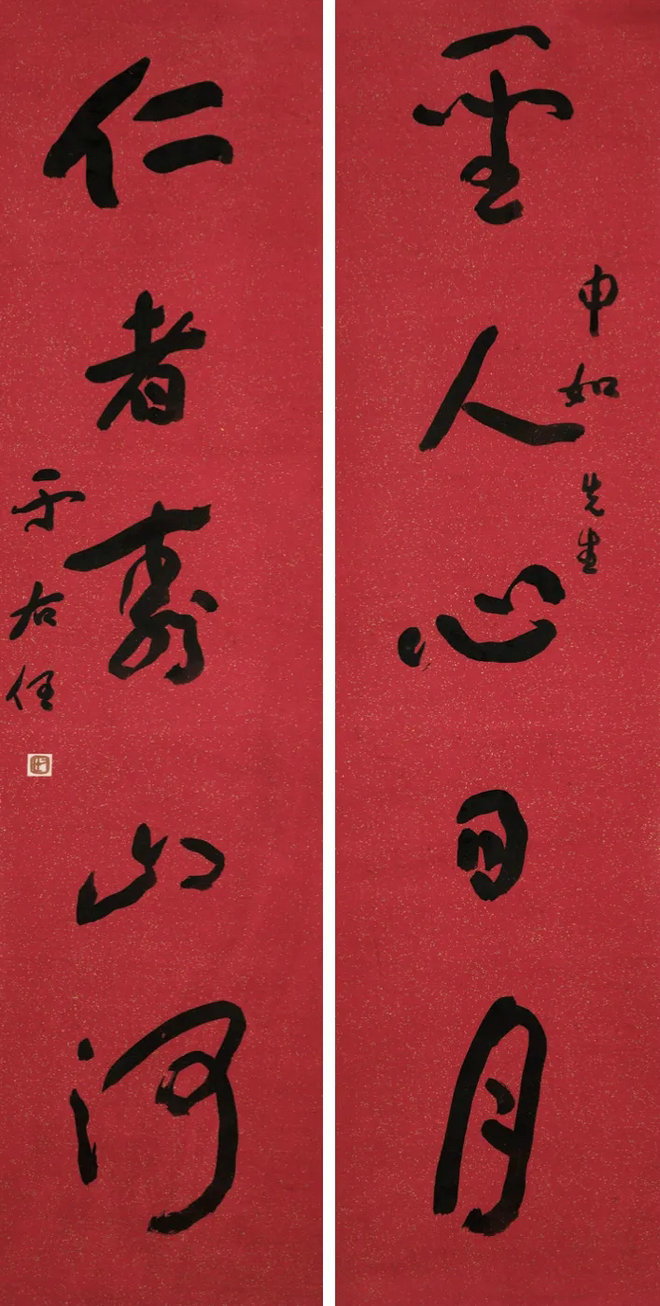 申如先生
聖人心日月
仁者壽山河
于右任